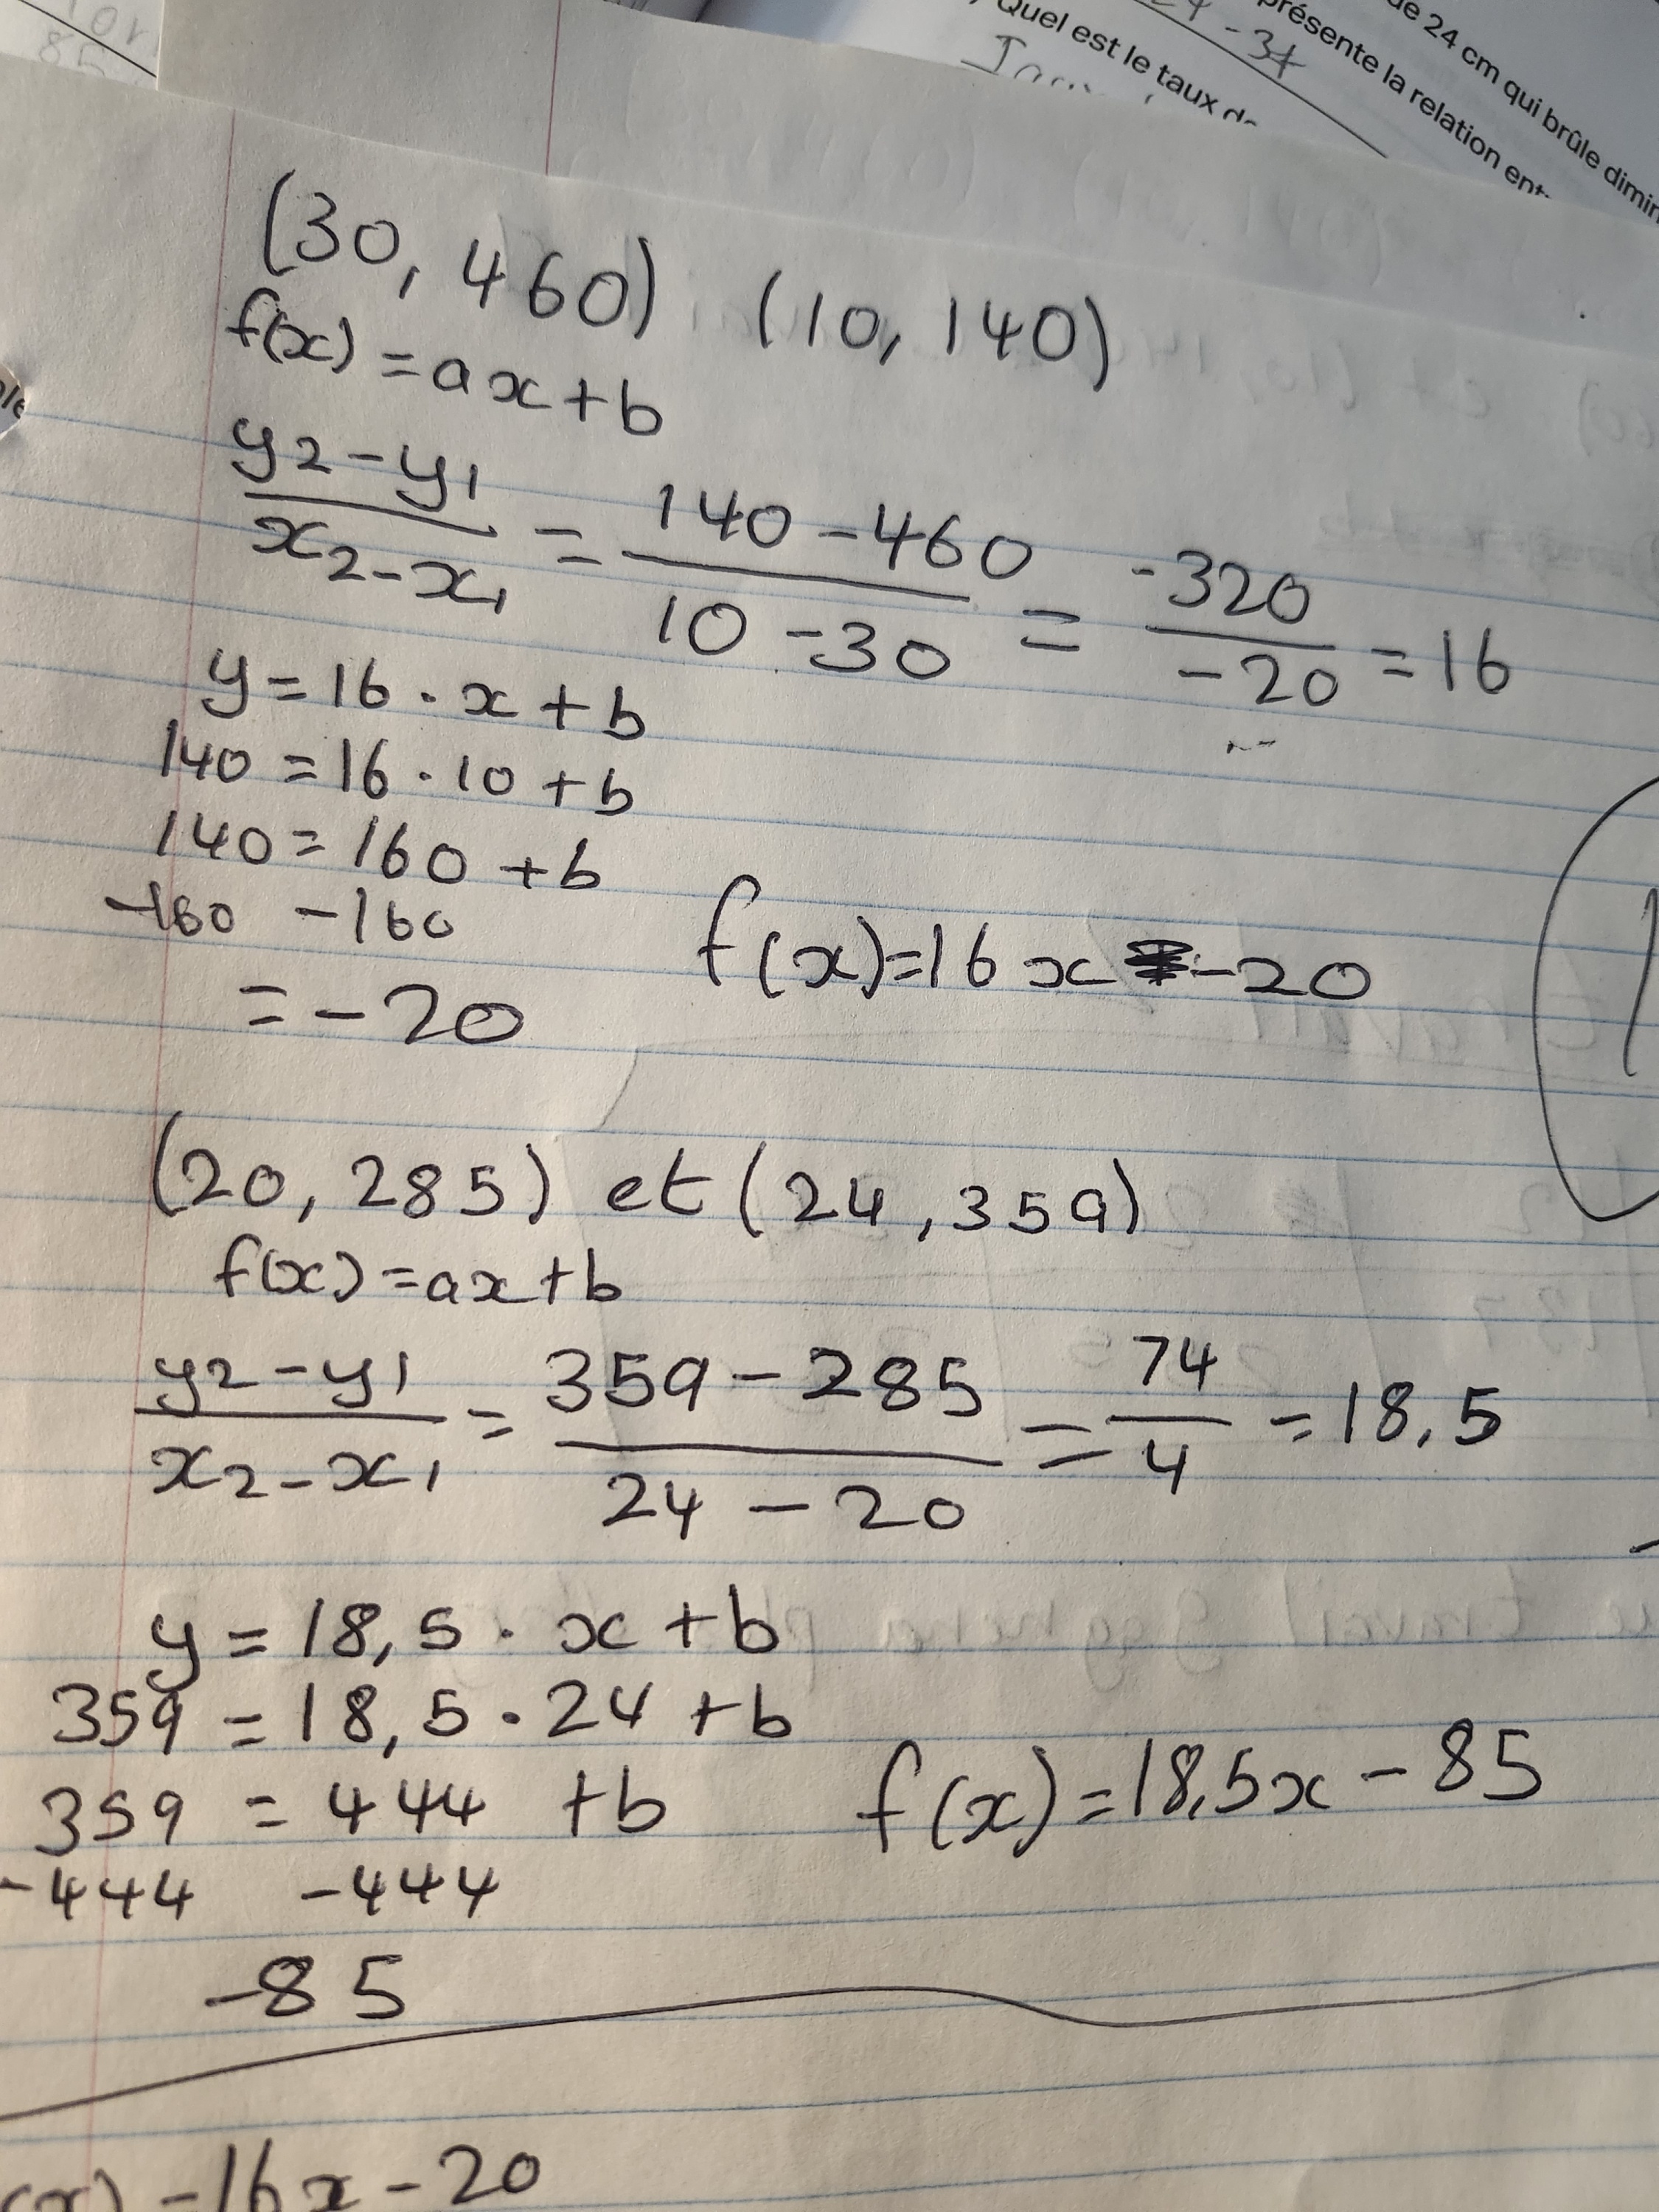 de 24 cm qui brûle
présente la relation
Quel est le taux
-34
(30, 460) (10, 140)
f(x) = ax+b
y2-y1 / x2-x1 = 140-460 / 10-30 = -320 / -20 = 16
y=16・x+b
140=16・10+b
140=160+b
-160 -160
=-20
f(x)=16x-20
(20, 285) et (24, 359)
f(x)=ax+b
y2-y1 / x2-x1 = 359-285 / 24-20 = 74 / 4 = 18,5
y=18,5・x+b
359=18,5・24+b
359=444 +b
-444 -444
-85
f(x)=18,5x-85
(x)=16x-20